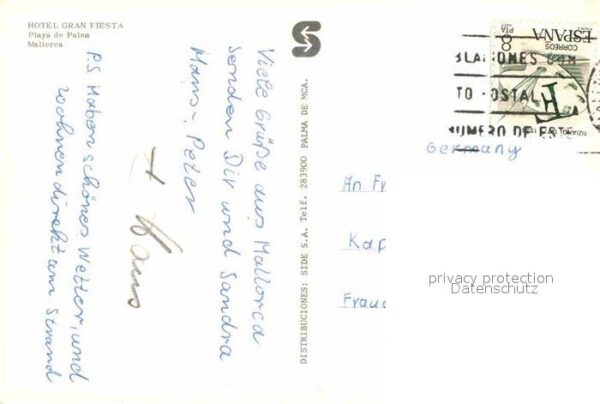 HOTEL GRAN FIESTA
Playa de Palma
Mallorca
Viele Grüße aus Mallorca
senden Dir und Sandra
Hans-Peter
+ Hans
P.S Haben schönes Wetter, und
wohnen direkt am Strand
DISTRIBUCIONES: SIDE S.A. Telf. 283900 PALMA DE MCA.
S
8 PTA
ESPAÑA
CORREOS
TO POSTAL
NUMERO DE
Germany
An Fr
Kap
privacy protection
Datenschutz